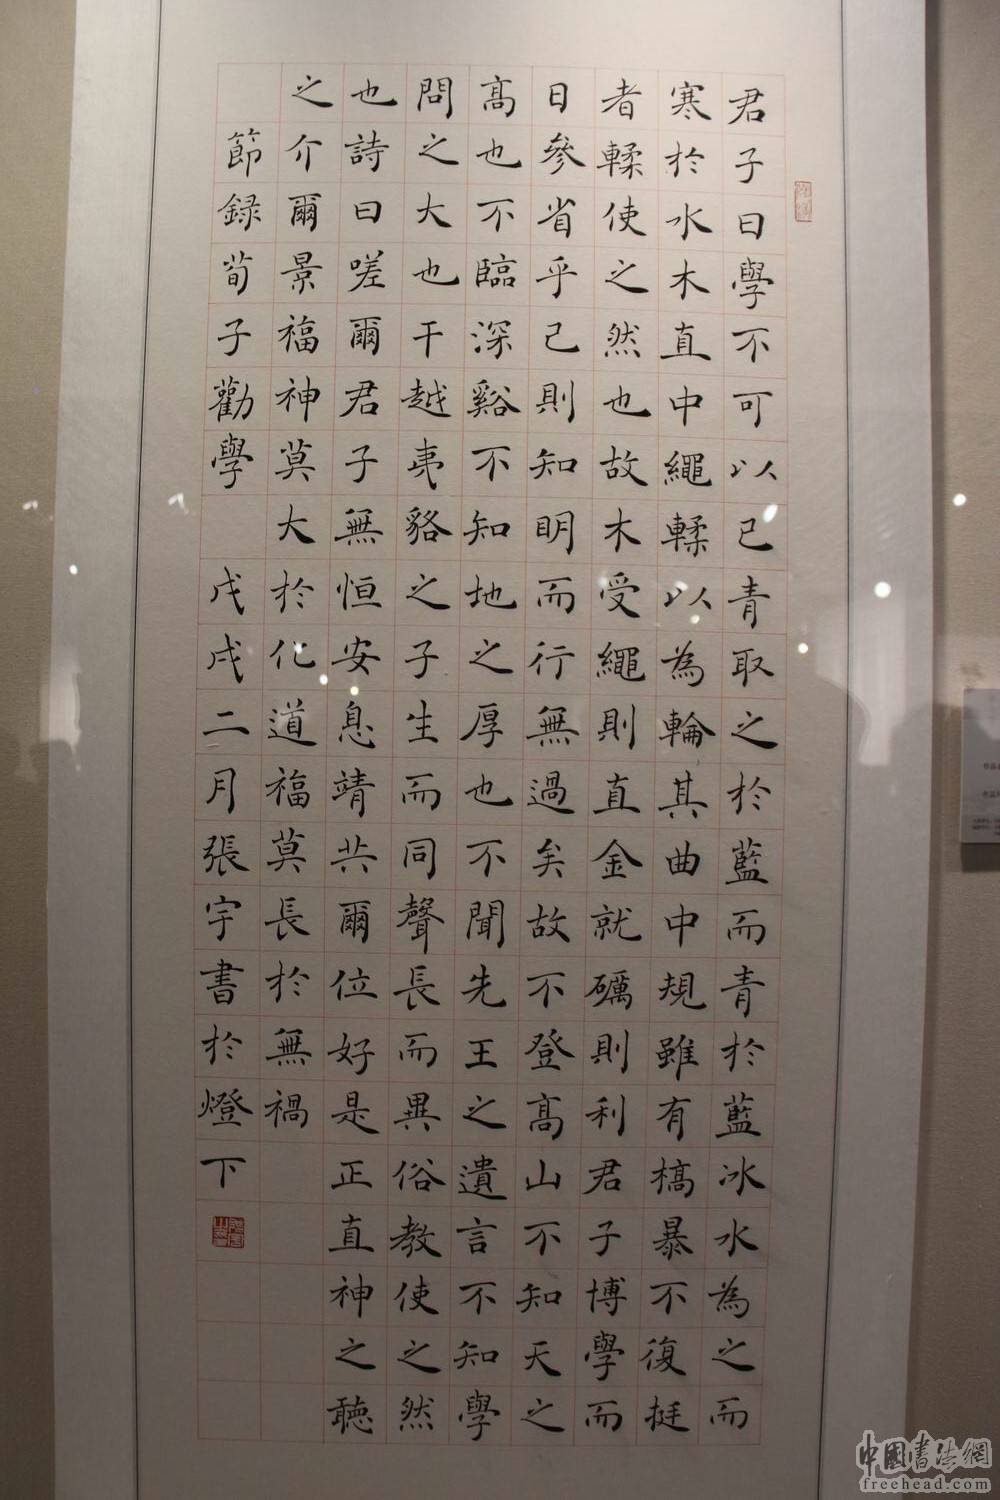 君子曰學不可以已青取之於藍而青於藍冰水為之而
寒於水木直中繩輮以為輪其曲中規雖有槁暴不復挺
者輮使之然也故木受繩則直金就礪則利君子博學而
日參省乎己則知明而行無過矣故不登高山不知天之
高也不臨深谿不知地之厚也不聞先王之遺言不知學
問之大也干越夷貉之子生而同聲長而異俗教使之然
也詩曰嗟爾君子無恒安息靖共爾位好是正直神之聽
之介爾景福神莫大於化道福莫長於無禍
節録荀子勸學 戊戌二月張宇書於燈下
中國書法網
freehead.com